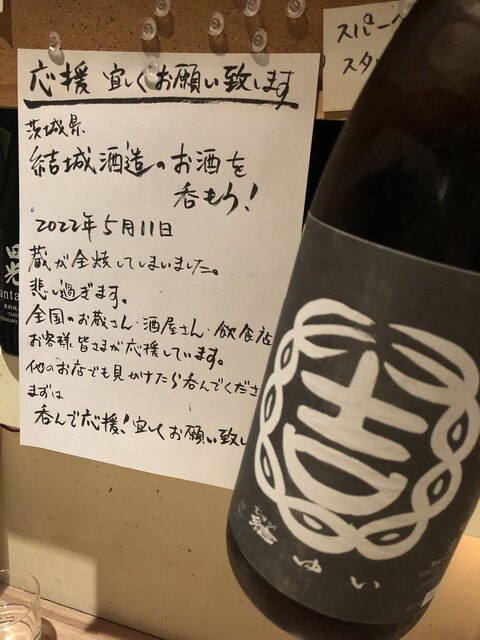 応援 宜しくお願い致します
茨城県
結城酒造のお酒を
呑もう!
2022年5月11日
蔵が全焼してしまいました。
悲し過ぎます。
全国のお蔵さん・酒屋さん・飲食店
お客様 皆さまが応援しています。
他のお店でも見かけたら呑んでくださ
まずは
呑んで応援!宜しくお願い致し
スパー
スタ
吉
結ゆい
むすび